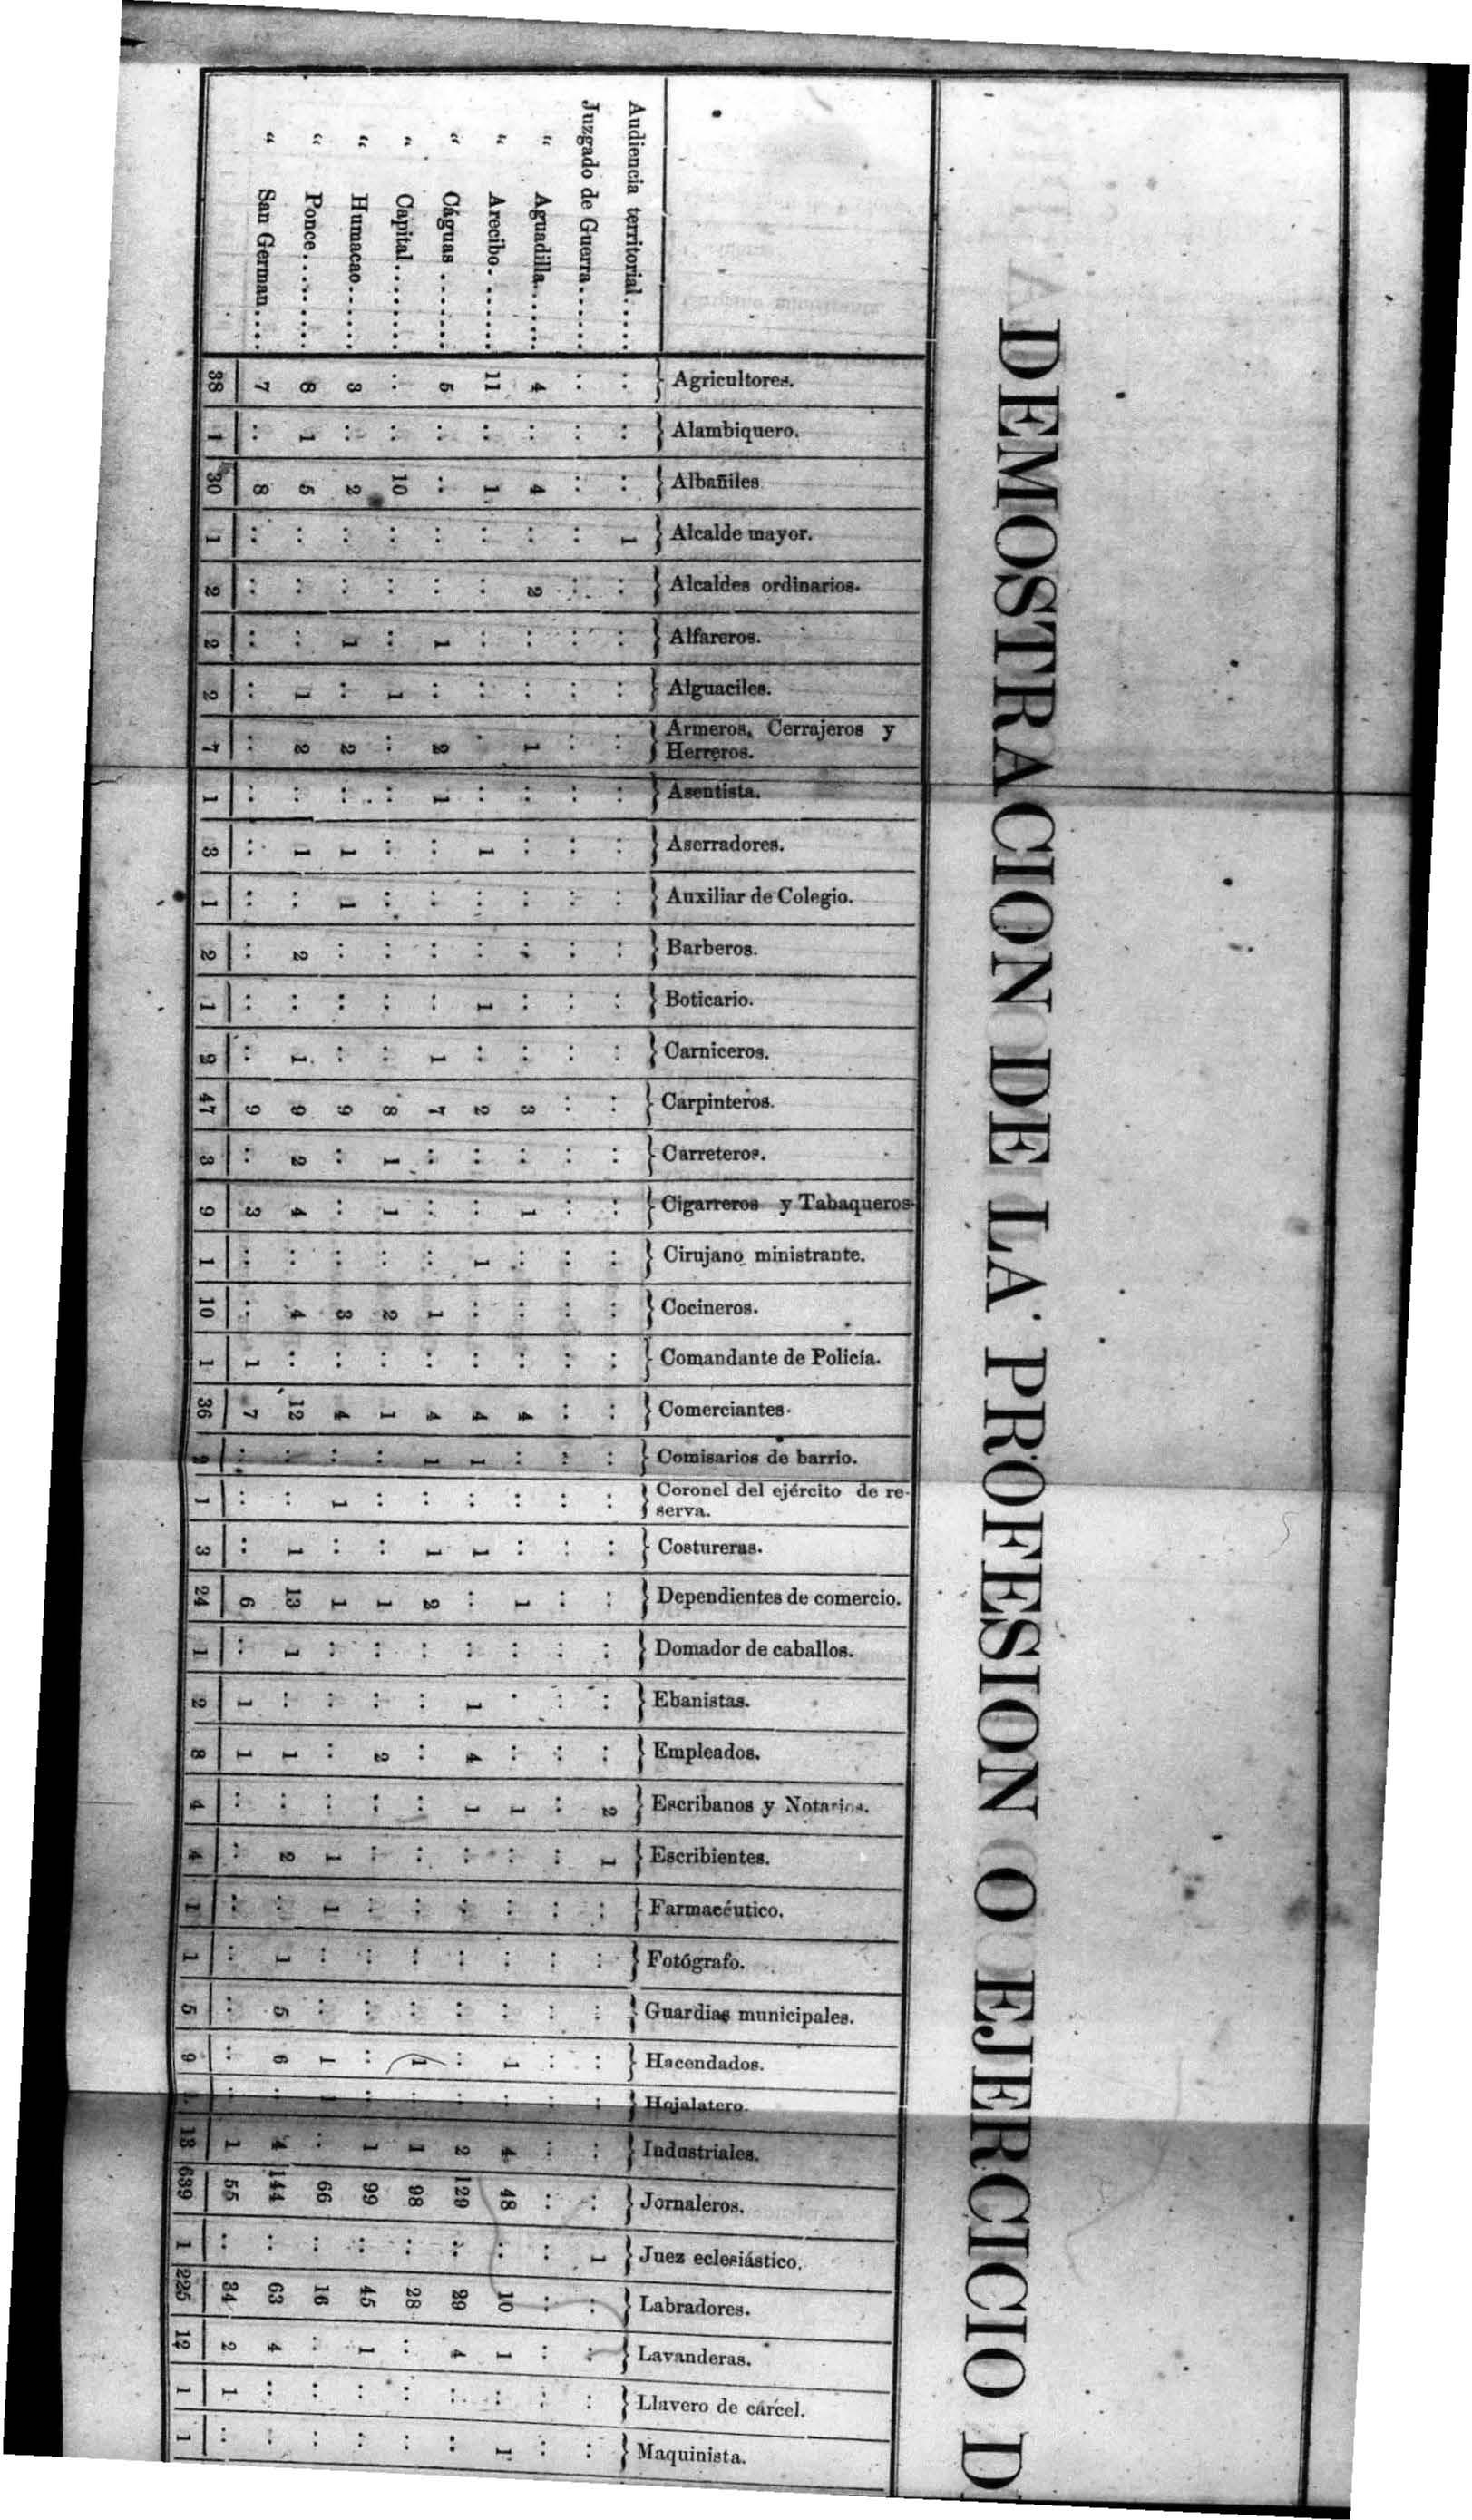 DEMOSTRACION DE LA PROFESION O EJERCICIO D
Audiencia territorial.....
Juzgado de Guerra.......
“ Aguadilla.......
“ Arecibo........
“ Cáguas .......
“ Capital.........
“ Humacao.......
“ Ponce.........
“ San German....
Agricultores. .. .. 4 11 5 .. 3 8 7 38
Alambiquero. .. .. .. .. .. .. .. 1 .. 1
Albañiles .. .. 4 1 .. 10 2 5 8 30
Alcalde mayor. 1 .. .. .. .. .. .. .. .. 1
Alcaldes ordinarios. .. .. 2 .. .. .. .. .. .. 2
Alfareros. .. .. .. .. 1 .. 1 .. .. 2
Alguaciles. .. .. .. .. .. 1 .. 1 .. 2
Armeros, Cerrajeros y
Herreros. .. .. 1 .. 2 .. 2 2 .. 7
Asentista. .. .. .. .. 1 .. .. .. .. 1
Aserradores. .. .. .. 1 .. .. 1 1 .. 3
Auxiliar de Colegio. .. .. .. .. .. .. 1 .. .. 1
Barberos. .. .. .. .. .. .. .. 2 .. 2
Boticario. .. .. .. 1 .. .. .. .. .. 1
Carniceros. .. .. .. .. 1 .. .. 1 .. 2
Carpinteros. .. .. 3 2 7 8 9 9 9 47
Carreteros. .. .. .. .. .. 1 .. 2 .. 3
Cigarreros y Tabaqueros. .. .. 1 .. .. 1 .. 4 3 9
Cirujano ministrante. .. .. .. 1 .. .. .. .. .. 1
Cocineros. .. .. .. .. 1 2 3 4 .. 10
Comandante de Policía. .. .. .. .. .. .. .. .. 1 1
Comerciantes. .. .. 4 4 4 1 4 12 7 36
Comisarios de barrio. .. .. .. 1 1 .. .. .. .. 2
Coronel del ejército de re-
serva. .. .. .. .. .. .. 1 .. .. 1
Costureras. .. .. .. 1 1 .. .. 1 .. 3
Dependientes de comercio. .. .. 1 .. 2 1 1 13 6 24
Domador de caballos. .. .. .. .. .. .. .. 1 .. 1
Ebanistas. .. .. .. 1 .. .. .. .. 1 2
Empleados. .. .. .. 4 .. 2 .. 1 1 8
Escribanos y Notarios. 2 .. 1 1 .. .. .. .. .. 4
Escribientes. 1 .. .. .. .. .. 1 2 .. 4
Farmacéutico. .. .. .. .. .. .. 1 .. .. 1
Fotógrafo. .. .. .. .. .. .. .. 1 .. 1
Guardias municipales. .. .. .. .. .. .. .. 5 .. 5
Hacendados. .. .. 1 .. 1 .. 1 6 .. 9
Hojalatero. .. .. .. .. .. .. 1 .. .. 1
Industriales. .. .. 4 2 1 1 .. 4 1 13
Jornaleros. .. .. 48 129 98 99 66 144 55 639
Juez eclesiástico. 1 .. .. .. .. .. .. .. .. 1
Labradores. .. .. 10 29 28 45 16 63 34 225
Lavanderas. .. .. 1 4 .. 1 .. 4 2 12
Llavero de cárcel. .. .. .. .. .. .. .. .. 1 1
Maquinista. .. .. 1 .. .. .. .. .. .. 1